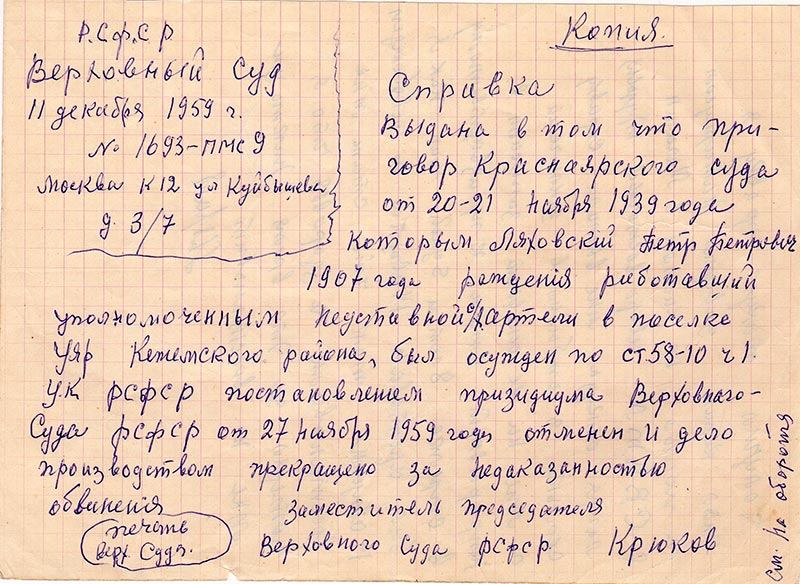 Р.С.Ф.С.Р
Верховный Суд
11 декабря 1959 г.
№ 1693-ПМС9
Москва К12 ул Куйбышева
д. 3/7
Копия.
Справка
Выдана в том что при-
говор Красноярского суда
от 20-21 ноября 1939 года
Которым Ляховский Петр Петрович
1907 года рождения работавший
уполномоченным Неуставной с/х артели в поселке
Уяр Кежемского района, был осужден по ст 58-10 ч 1.
УК РСФСР постановлением призидиума Верховнаго-
Суда РСФСР от 27 ноября 1959 года отменен и дело
производством прекращено за недаказанностью
обвинения
Заместитель председателя
печать
Верх. Суда.
Верховного Суда РСФСР Крюков
См. На обороте